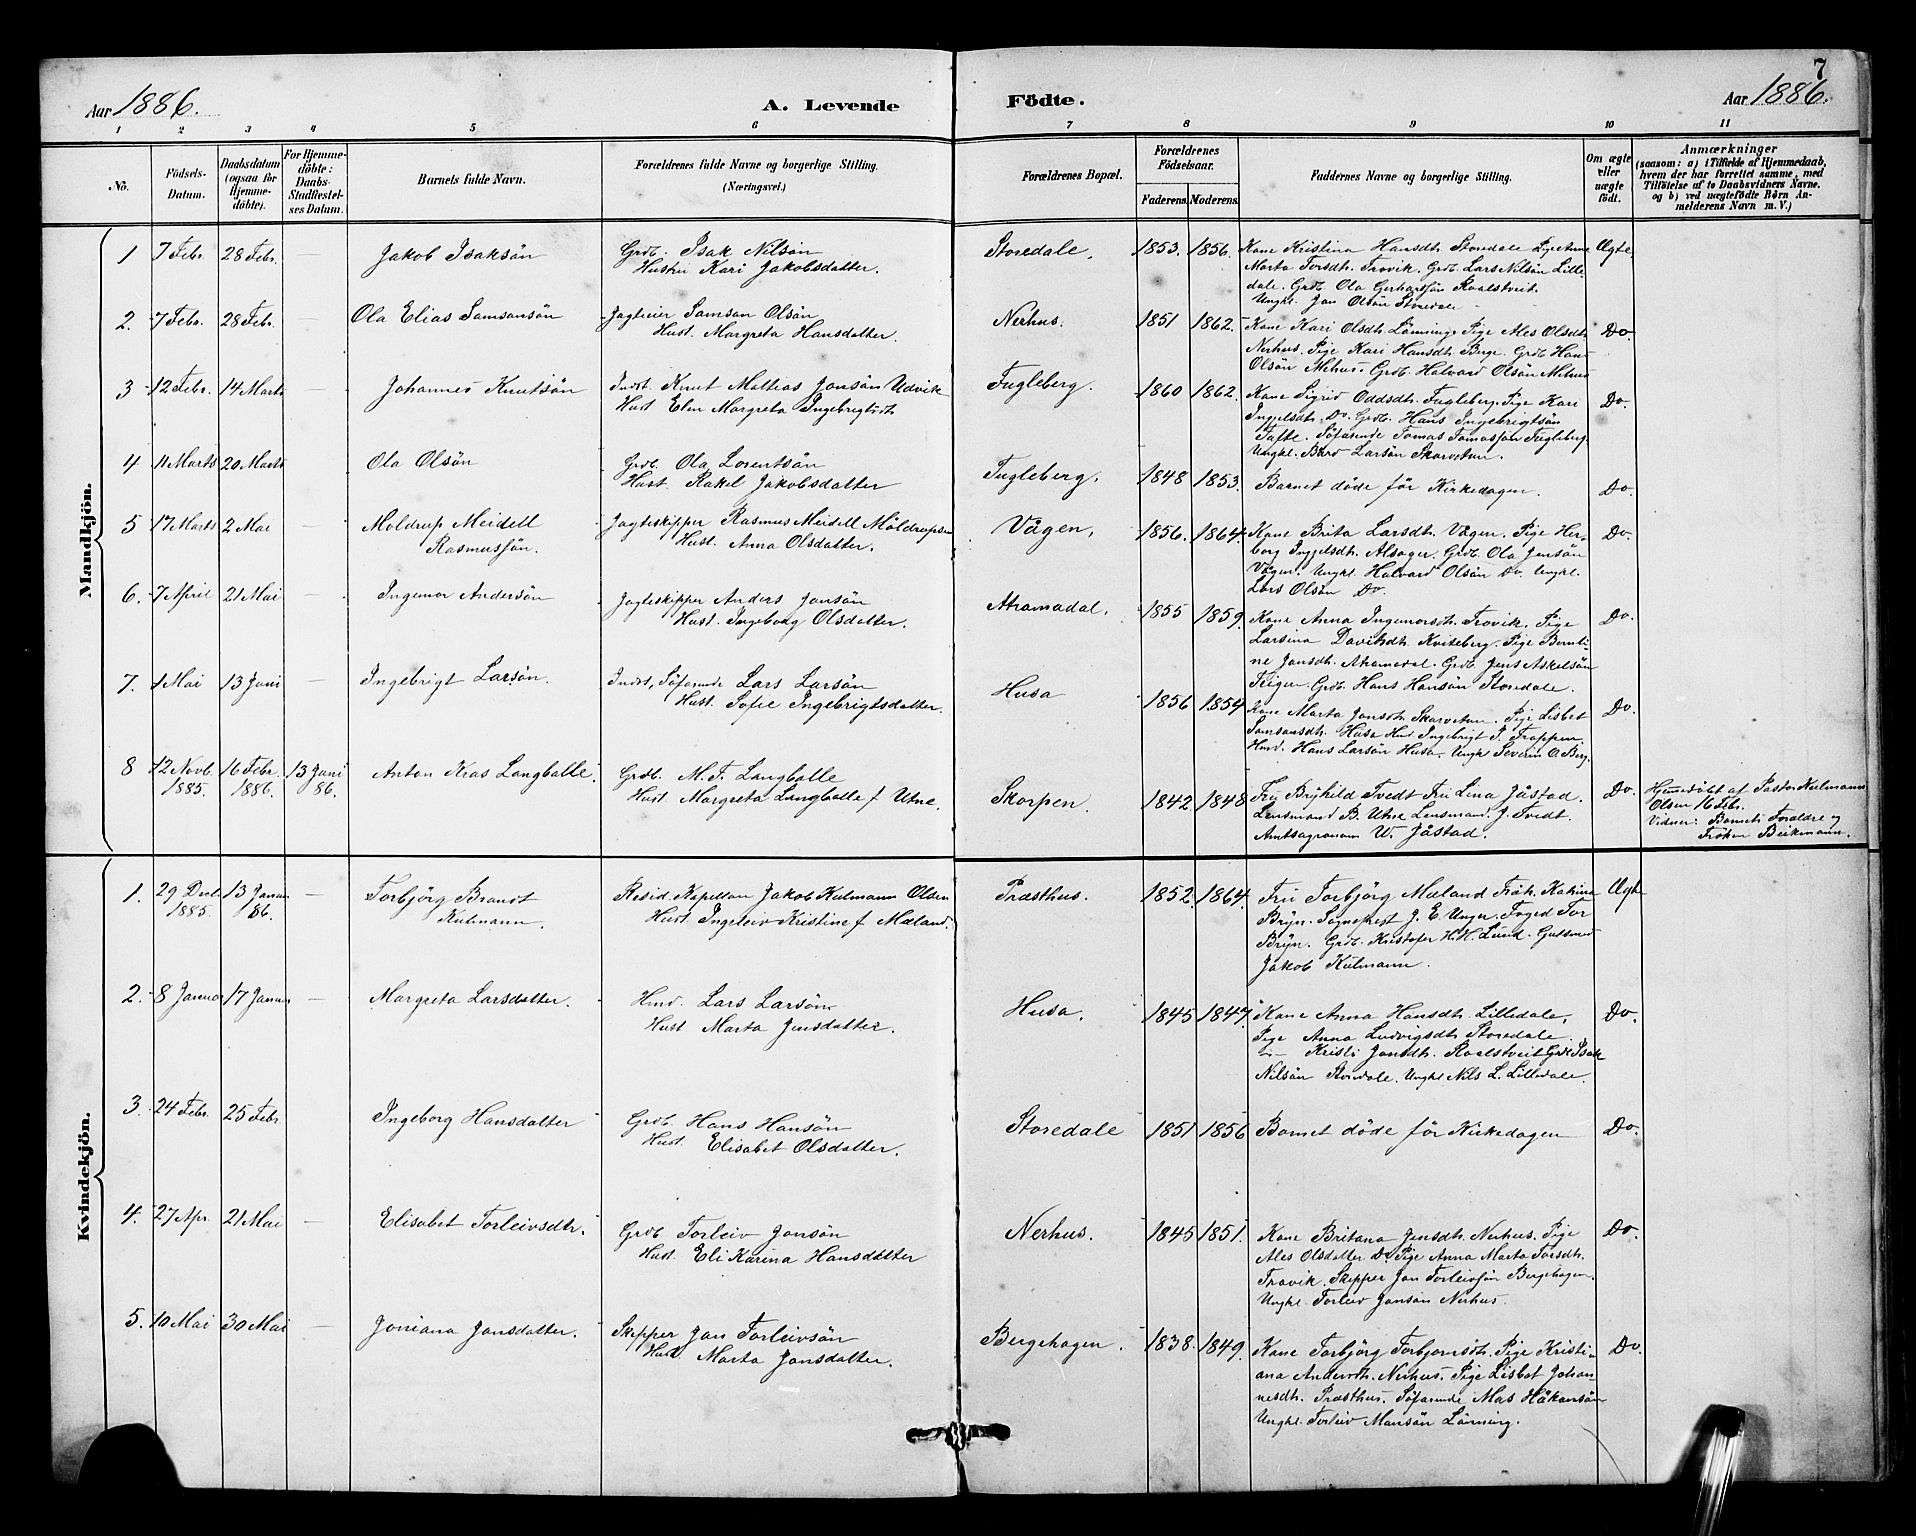 7
Aar 1886. A. Levende Födte. Aar 1886.
1 2 3 4 5 6 7 8 9 10 11
No.
Födsels-Datum.
Daabsdatum (ogsaa for Hjemme-döbte).
For Hjemme-döbte: Daabs-Stadfæstel-ses Datum.
Barnets fulde Navn.
Forældrenes fulde Navne og borgerlige Stilling. (Næringsvei.)
Forældrenes Bopæl.
Forældrenes Födselsaar.
Faderens. Moderens.
Faddernes Navne og borgerlige Stilling.
Om ægte eller uægte födt.
Anmærkninger
(saasom: a) i Tilfælde af Hjemmedaab,
hvem der har forrettet samme, med
Tilföielse af to Daabsvidners Navne,
og b) ved uægtefödte Börn An-
melderens Navn m. V.)
Mandkjön.
1 7 Febr. 28 Febr. — Jakob Isaksön Grdb. Isak Nilsön
Hustru Kari Jakobsdatter. Storedale. 1853. 1856. Kone Kristina Hansdtr. Storedale Pige Anne Ægte
Marta Torsdtr. Trovik. Grdb. Lars Nilsön Lille
dale. Grdb. Ola Gerhartsön Raalstveit.
Ungkl. Jon Olsön Storedale
2. 7 Febr. 28 Febr. — Ola Elias Samsonsön Jagteier Samson Olsön
Hust. Margreta Hansdatter. Nerhus. 1851 1862. Kone Kari Olsdtr. Lönning. Pige Ales Olsdtr. Do.
Nerhus. Pige Kari Hansdtr. Berge. Grdb. Hans
Olsön Mehus. Grdb. Halvard Olsön Mehus
3 12 Febr. 14 Marts — Johannes Knutsön Indst. Knut Mathias Jonsön Udvik
Hust Elen Margreta Ingebrigtsdtr. Fugleberg. 1860 1862. Kone Sigrid Oddsdtr. Fugleberg. Pige Kari Do.
Ingjelsdtr. Do. Grdb. Hans Ingebrigtsön
Tofte. Söfarende Tomas Tomassön Fugleberg
Ungkl. Bård Larsön Skorvetun.
4 11 Marts 20 Marts — Ola Olsön Grdb. Ola Lorentsön
Hust. Rakel Jakobsdatter Fugleberg. 1848 1853. Barnet döde för Kirkedagen. Do.
5 17 Marts 2 Mai — Moldrup Meidell
Rasmussön. Jagteskipper Rasmus Meidell Möldrupsen
Hust. Anna Olsdatter. Vågen. 1856. 1864. Kone Brita Larsdtr. Vågen. Pige Her- Do.
borg Ingjelsdtr. Alsager. Grdb. Ola Jensön
Vågen. Ungkl. Halvard Olsön Do. Ungkl.
Lars Olsön Do.
6. 7 April 21 Mai — Ingemar Andersön Jagteskipper Anders Jonsön
Hust. Ingeborg Olsdatter. Aramadal. 1855 1859. Kone Anna Ingemorsdtr. Trovik. Pige Do.
Larsina Davitsdtr. Kviteberg. Pige Bomli-
ne Jonsdtr. Aramadal. Grdb. Jens Askelsön
Teigen. Grdb. Hans Hansön Storedale.
7. 1 Mai 13 Juni — Ingebrigt Larsön. Indst, Söfarende Lars Larsön
Hust. Sofie Ingebrigtsdatter. Husa 1856 1854 Kone Marta Jonsdtr. Skorvetun. Pige Lisbet Do.
Samsonsdtr. Husa Hmd Ingebrigt P. Troppen
Hmd. Hans Larsön Husa. Ungkl Severin O. Berg.
8 12 Novb. 1885. 16 Febr. 1886. 13 Juni 86. Anton Kras Langballe. Grdb. M. F. Langballe
Hust. Margreta Langballe f. Utne. Skorpen. 1842 1848 Fru Brynhild Tvedt Fru Lina Jåstad. Do. Hjemmedöbt af Pastor Kulmann
Lensmand B. Utne Lensmand. J. Tvedt. Olsen 16 Febr.
Amtsagronom W. Jåstad. Vidner: Barnets Forældre og
Fröken Beekmann.
Kvindekjön.
1. 29 Decb. 1885. 13 Januar 86. — Torbjörg Brandt
Kulmann. Resid. Kapellan Jakob Kulmann Olsen
Hust. Ingeleiv Kristine f. Mæland. Præsthus. 1852. 1864. Fru Torbjörg Mæland Frök. Katrina Ægte
Bryn. Sogneprest J. E. Unger. Foged Tor
Bryn. Grdb. Kristofer H. H. Lund. Guldsmed
Jakob Kulmann.
2. 8 Januar 17 Januar — Margreta Larsdatter. Hmd. Lars Larsön
Hust Marta Jensdatter. Husa. 1845 1847. Kone Anna Hansdtr. Lilledale. Do.
Pige Anna Ludvigsdtr. Storedale.
— Kristi Jonsdtr. Raalstveit Grdb Isak
Nilsön Storedale. Ungkl Nils L. Lilledale.
3. 24 Febr. 25 Febr. — Ingeborg Hansdatter Grdb. Hans Hansön
Hust. Elisabet Olsdatter. Storedale 1851 1856 Barnet döde för Kirkedagen Do.
4. 27 Apr. 21 Mai — Elisabet Torleivsdtr. Grdb Torleiv Jonsön
Hust. Eli Karina Hansdatter Nerhus. 1845 1851. Kone Britana Jensdtr. Nerhus. Pige Do.
Ales Olsdatter Do Pige Anna Marta Torsdtr.
Trovik. Skipper Jon Torleivsön Bergehagen.
Ungkl. Torleiv Jonsön Nerhus.
5. 10 Mai 30 Mai — Joniana Jonsdatter. Skipper Jon Torleivsön
Hust Marta Jonsdatter. Bergehagen. 1838. 1849. Kone Torbjörg Torbjornsdtr. Pige Kristi- Do.
ana Andersdtr. Nerhus. Pige Lisbet Johan
nesdtr. Præsthus. Söfarende Mas Håkonsön
Ungkl. Torleiv Monsön Lönning.